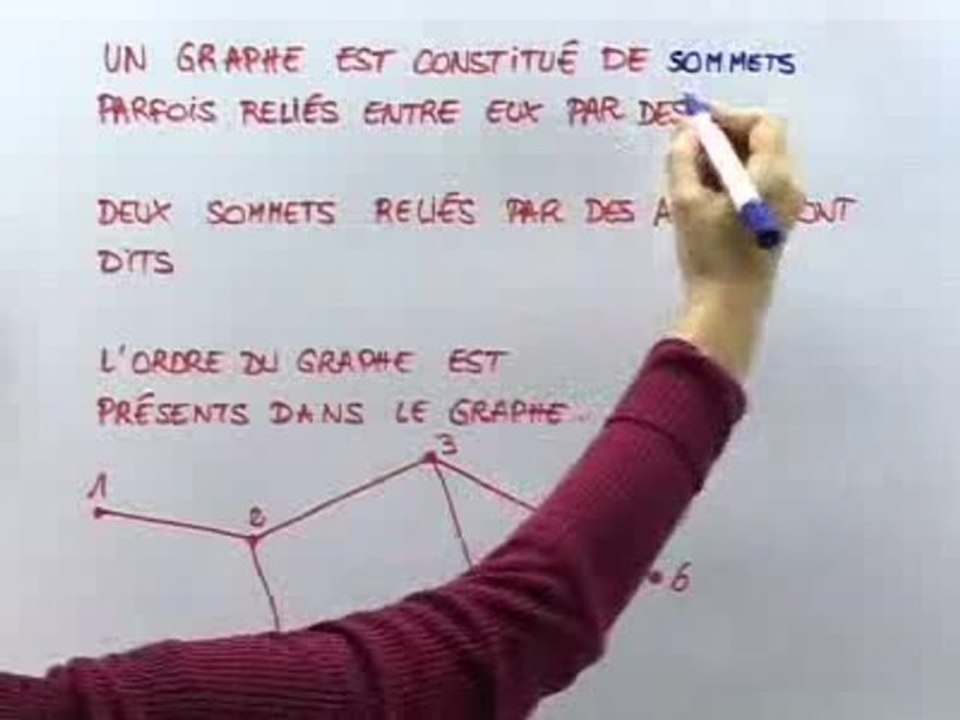 UN GRAPHE EST CONSTITUÉ DE SOMMETS
PARFOIS RELIÉS ENTRE EUX PAR DES
DEUX SOMMETS RELIÉS PAR DES
DITS
L'ORDRE DU GRAPHE EST
PRÉSENTS DANS LE GRAPHE.
3
1
2
6